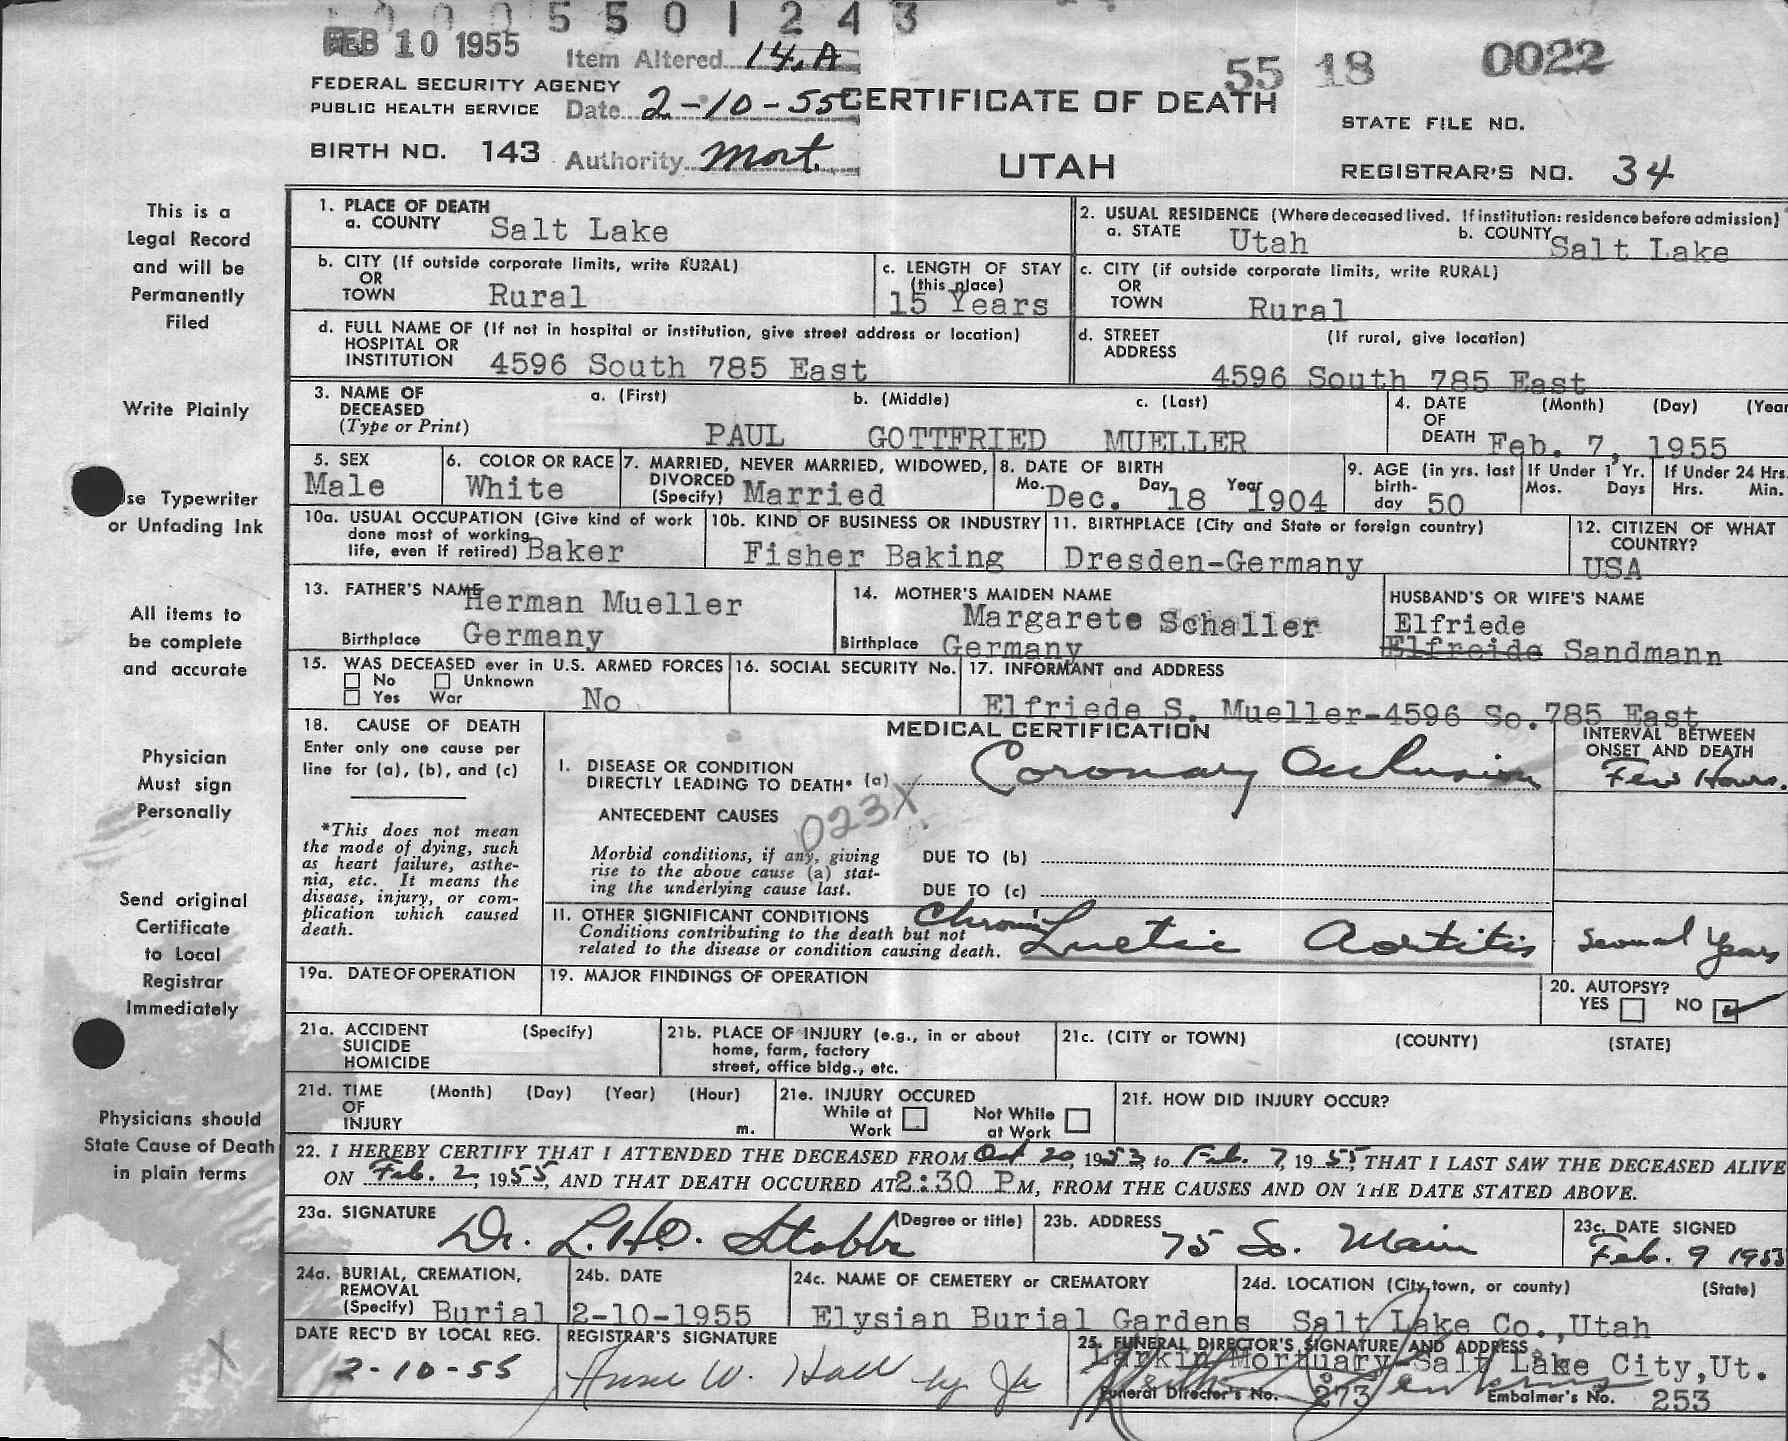 0005501243
FEB 10 1955
Item Altered 14, A
55 18 0022
FEDERAL SECURITY AGENCY
PUBLIC HEALTH SERVICE
Date 2-10-55
CERTIFICATE OF DEATH
STATE FILE NO.
BIRTH NO. 143
Authority Mort.
UTAH
REGISTRAR'S NO. 34
This is a
Legal Record
and will be
Permanently
Filed
Write Plainly
se Typewriter
or Unfading Ink
All items to
be complete
and accurate
Physician
Must sign
Personally
Send original
Certificate
to Local
Registrar
Immediately
Physicians should
State Cause of Death
in plain terms
1. PLACE OF DEATH
a. COUNTY Salt Lake
2. USUAL RESIDENCE (Where deceased lived. If institution: residence before admission)
a. STATE Utah b. COUNTY Salt Lake
b. CITY (If outside corporate limits, write RURAL)
OR
TOWN Rural
c. LENGTH OF STAY
(this place)
15 Years
c. CITY (if outside corporate limits, write RURAL)
OR
TOWN Rural
d. FULL NAME OF (If not in hospital or institution, give street address or location)
HOSPITAL OR
INSTITUTION 4596 South 785 East
d. STREET (If rural, give location)
ADDRESS
4596 South 785 East
3. NAME OF a. (First) b. (Middle) c. (Last)
DECEASED
(Type or Print) PAUL GOTTFRIED MUELLER
4. DATE (Month) (Day) (Year
OF
DEATH Feb. 7, 1955
5. SEX
Male
6. COLOR OR RACE
White
7. MARRIED, NEVER MARRIED, WIDOWED,
DIVORCED
(Specify) Married
8. DATE OF BIRTH
Mo. Dec. Day 18 Year 1904
9. AGE (in yrs. last
birth-
day 50
If Under 1 Yr.
Mos. Days
If Under 24 Hrs.
Hrs. Min.
10a. USUAL OCCUPATION (Give kind of work
done most of working
life, even if retired) Baker
10b. KIND OF BUSINESS OR INDUSTRY
Fisher Baking
11. BIRTHPLACE (City and State or foreign country)
Dresden-Germany
12. CITIZEN OF WHAT
COUNTRY?
USA
13. FATHER'S NAME Herman Mueller
Birthplace Germany
14. MOTHER'S MAIDEN NAME
Margarete Schaller
Birthplace Germany
HUSBAND'S OR WIFE'S NAME
Elfriede
Elfreide Sandmann
15. WAS DECEASED ever in U.S. ARMED FORCES
No Unknown
Yes War No
16. SOCIAL SECURITY No.
17. INFORMANT and ADDRESS
Elfriede S. Mueller-4596 So.785 East
18. CAUSE OF DEATH
Enter only one cause per
line for (a), (b), and (c)
*This does not mean
the mode of dying, such
as heart failure, asthe-
nia, etc. It means the
disease, injury, or com-
plication which caused
death.
MEDICAL CERTIFICATION
INTERVAL BETWEEN
ONSET AND DEATH
I. DISEASE OR CONDITION
DIRECTLY LEADING TO DEATH* (a) Coronary Occlusion
Few Hours.
ANTECEDENT CAUSES
023X
Morbid conditions, if any, giving
rise to the above cause (a) stat-
ing the underlying cause last.
DUE TO (b)
DUE TO (c)
II. OTHER SIGNIFICANT CONDITIONS
Conditions contributing to the death but not
related to the disease or condition causing death.
Chronic Luetic Aortitis
Several Years
19a. DATE OF OPERATION
19. MAJOR FINDINGS OF OPERATION
20. AUTOPSY?
YES NO
21a. ACCIDENT (Specify)
SUICIDE
HOMICIDE
21b. PLACE OF INJURY (e.g., in or about
home, farm, factory
street, office bldg., etc.
21c. (CITY or TOWN) (COUNTY) (STATE)
21d. TIME (Month) (Day) (Year) (Hour)
OF
INJURY m.
21e. INJURY OCCURED
While at Work
Not While at Work
21f. HOW DID INJURY OCCUR?
22. I HEREBY CERTIFY THAT I ATTENDED THE DECEASED FROM Oct 20, 1953, to Feb. 7, 1955, THAT I LAST SAW THE DECEASED ALIVE
ON Feb. 2, 1955, AND THAT DEATH OCCURED AT 2:30 P M, FROM THE CAUSES AND ON THE DATE STATED ABOVE.
23a. SIGNATURE (Degree or title)
Dr. L.H.O. Stobbe
23b. ADDRESS
75 So. Main
23c. DATE SIGNED
Feb. 9 1955
24a. BURIAL, CREMATION,
REMOVAL
(Specify) Burial
24b. DATE
2-10-1955
24c. NAME OF CEMETERY or CREMATORY
Elysian Burial Gardens
24d. LOCATION (City, town, or county) (State)
Salt Lake Co., Utah
DATE REC'D BY LOCAL REG.
2-10-55
REGISTRAR'S SIGNATURE
W. Hall by
25. FUNERAL DIRECTOR'S SIGNATURE AND ADDRESS
Larkin Mortuary-Salt Lake City, Ut.
Funeral Director's No. 273
Embalmer's No. 253
X